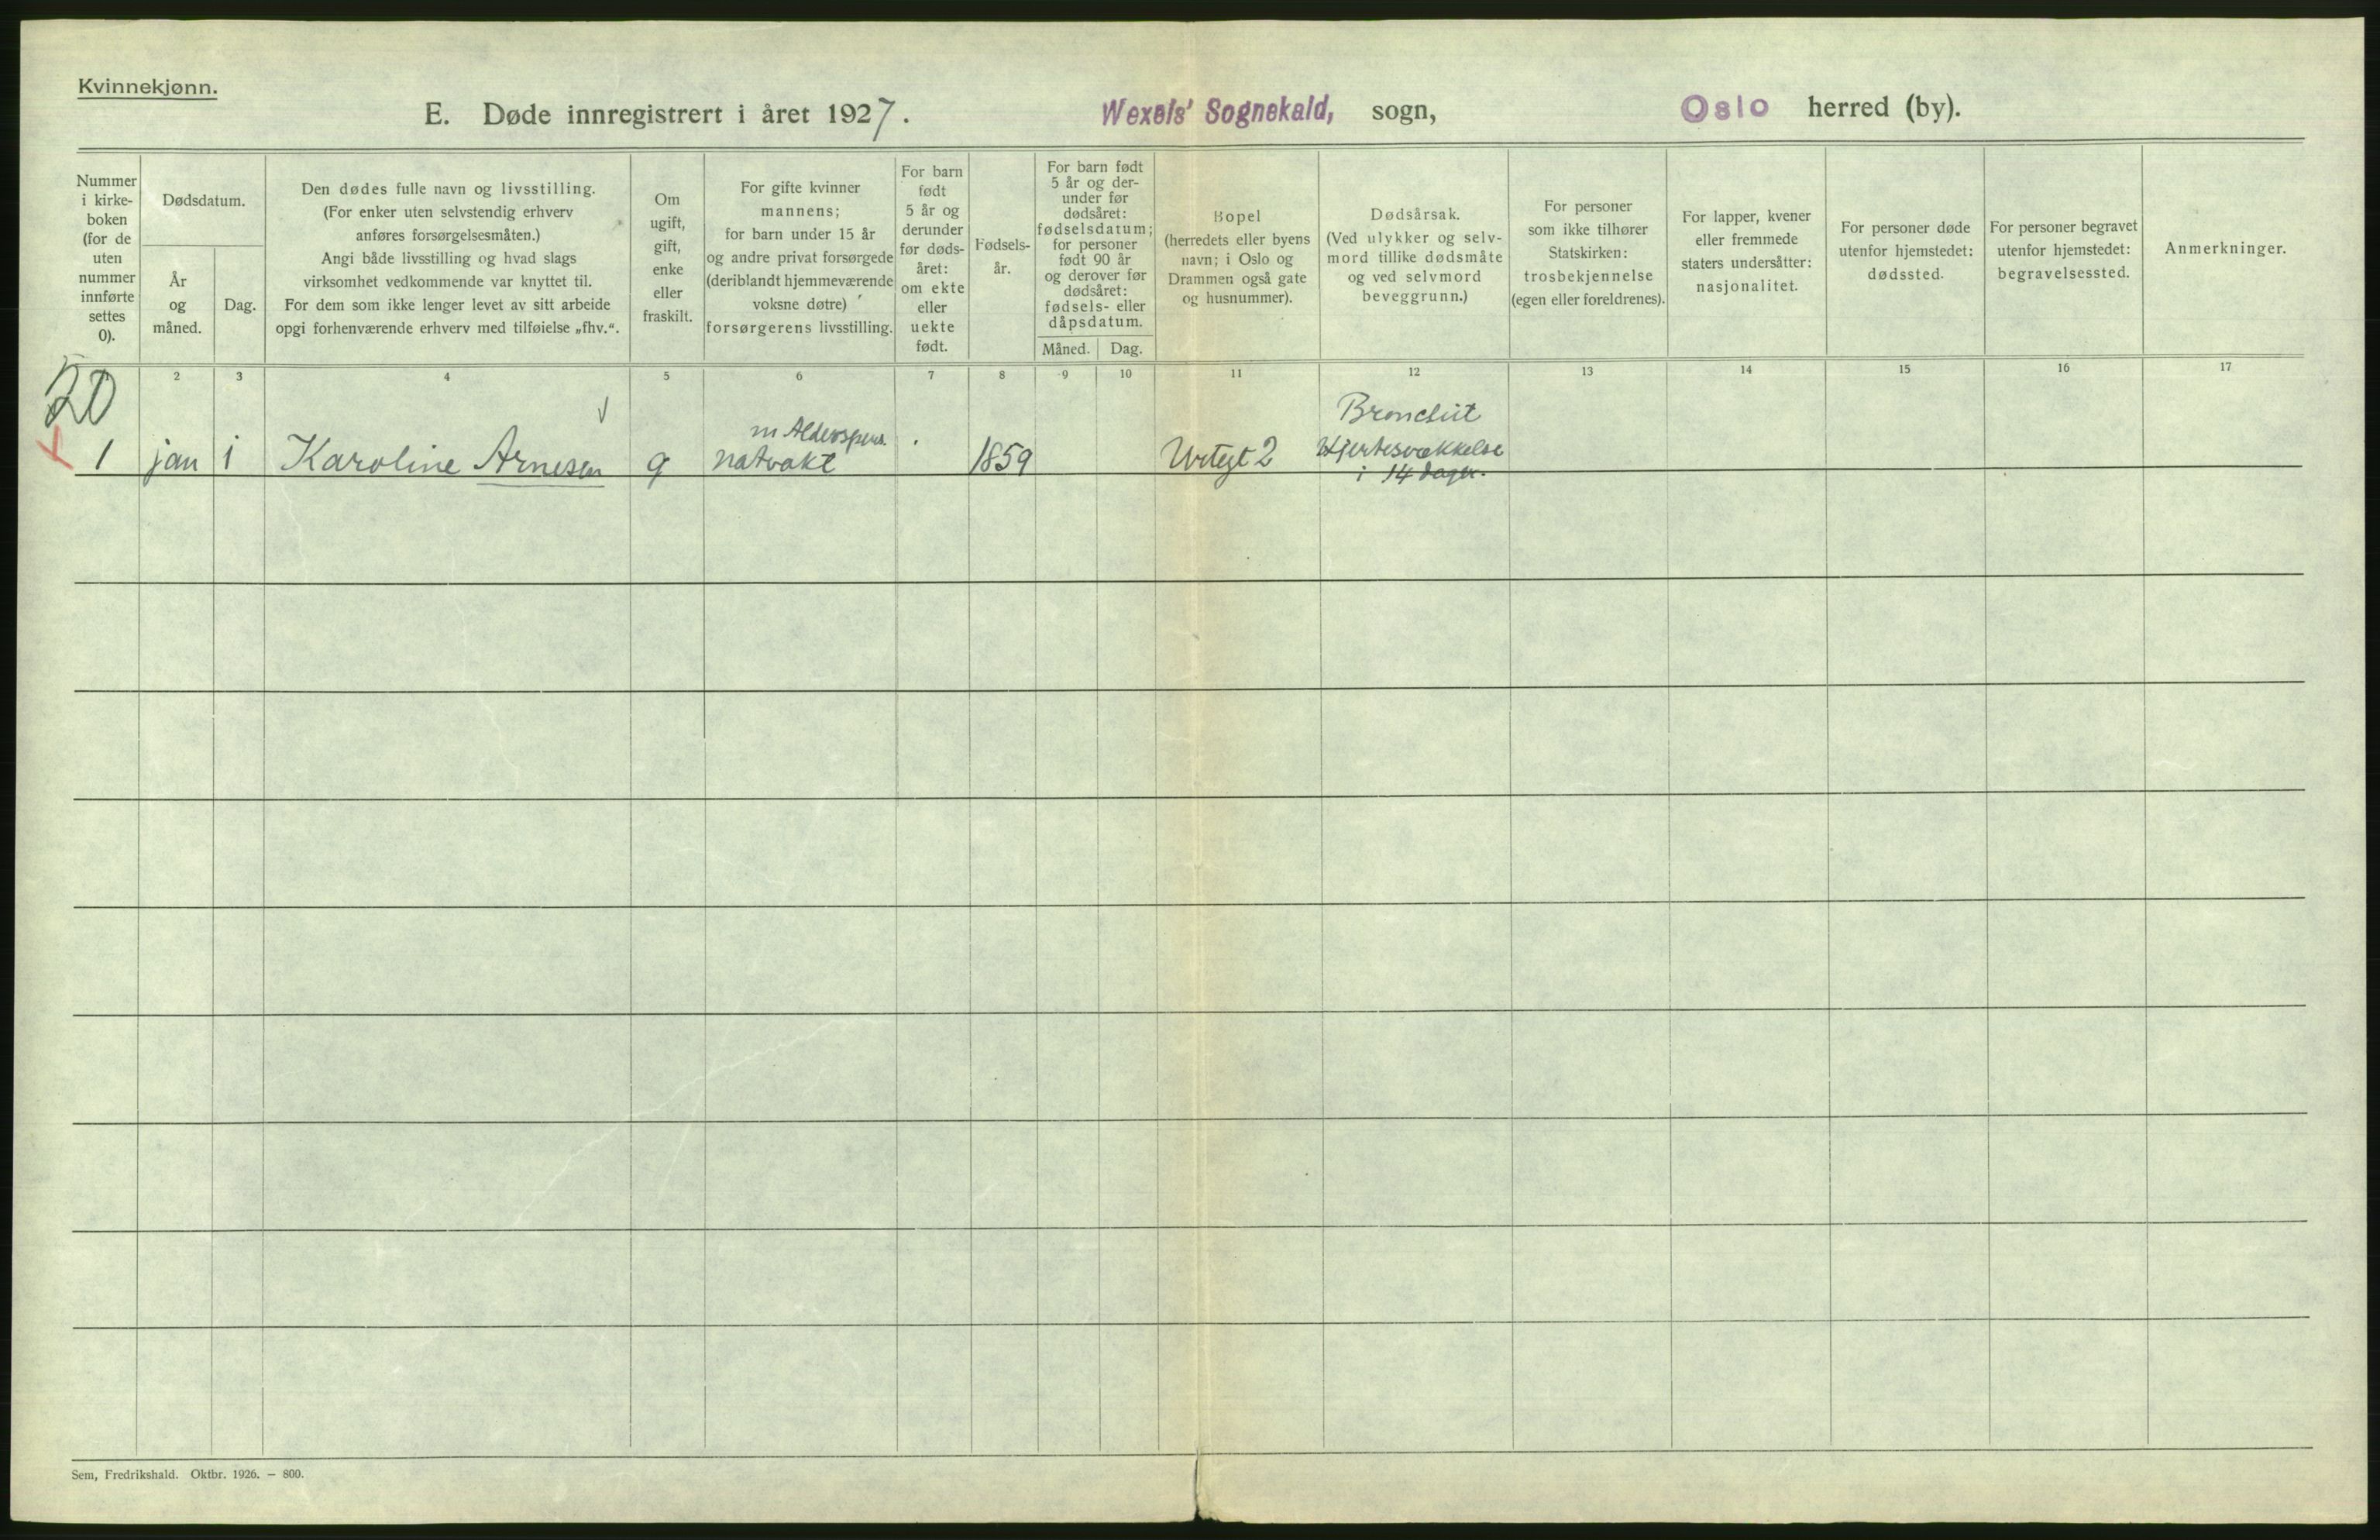 Kvinnekjønn.
E. Døde innregistrert i året 1927. Wexels' Sognekald, sogn, Oslo herred (by).
Nummer
i kirke-
boken
(for de
uten
nummer
innførte
settes
0).
Dødsdatum.
År
og
måned.
Dag.
Den dødes fulle navn og livsstilling.
(For enker uten selvstendig erhverv
anføres forsørgelsesmåten.)
Angi både livsstilling og hvad slags
virksomhet vedkommende var knyttet til.
For dem som ikke lenger levet av sitt arbeide
opgi forhenværende erhverv med tilføielse „fhv.“.
Om
ugift,
gift,
enke
eller
fraskilt.
For gifte kvinner
mannens;
for barn under 15 år
og andre privat forsørgede
(deriblandt hjemmeværende
voksne døtre)
forsørgerens livsstilling.
For barn
født
5 år og
derunder
før døds-
året:
om ekte
eller
uekte
født.
Fødsels-
år.
For barn født
5 år og der-
under før
dødsåret:
fødselsdatum;
for personer
født 90 år
og derover før
dødsåret:
fødsels- eller
dåpsdatum.
Måned. Dag.
Bopel
(herredets eller byens
navn; i Oslo og
Drammen også gate
og husnummer).
Dødsårsak.
(Ved ulykker og selv-
mord tillike dødsmåte
og ved selvmord
beveggrunn.)
For personer
som ikke tilhører
Statskirken:
trosbekjennelse
(egen eller foreldrenes).
For lapper, kvener
eller fremmede
staters undersåtter:
nasjonalitet.
For personer døde
utenfor hjemstedet:
dødssted.
For personer begravet
utenfor hjemstedet:
begravelsessted.
Anmerkninger.
2 3 4 5 6 7 8 9 10 11 12 13 14 15 16 17
20
1 jan 1 Karoline Arnesen g
m Alderspens.
natvakt
1859
Urtegt 2
Bronchit
Hjertesvækkelse
i 14 dager.
Sem, Fredrikshald. Oktbr. 1926. — 800.